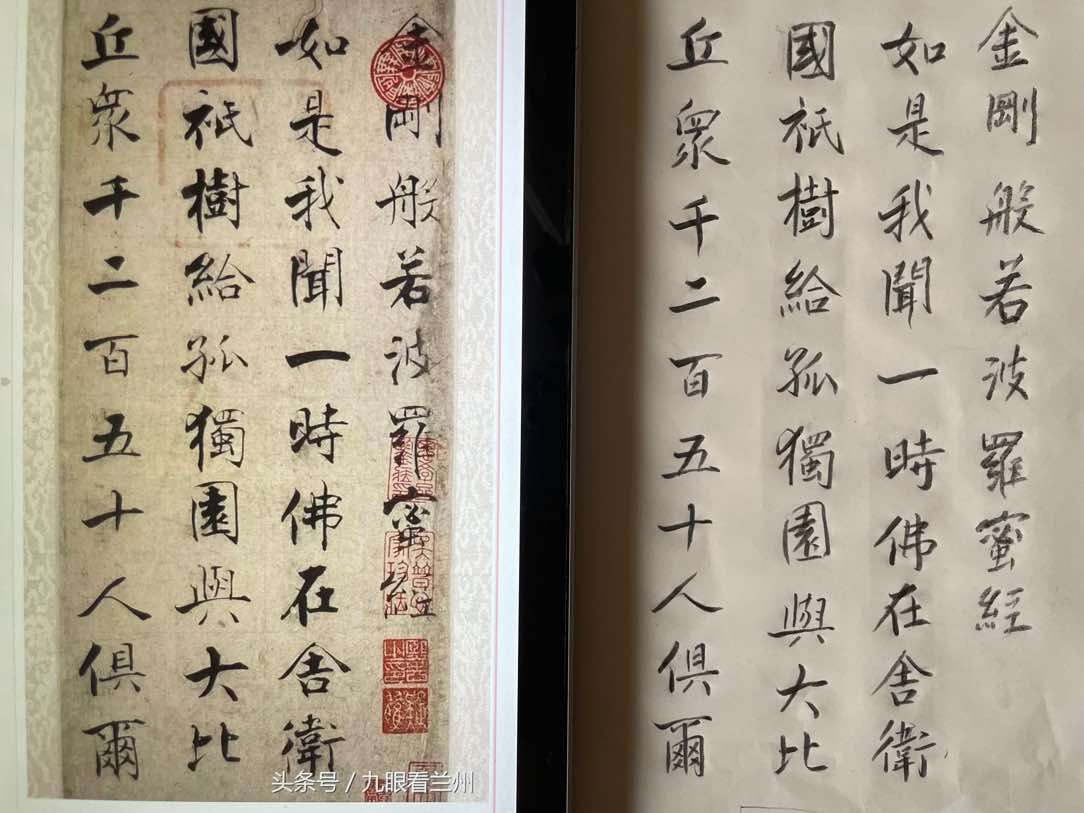 金剛般若波羅蜜經
如是我聞一時佛在舍衛
國祇樹給孤獨園與大比
丘衆千二百五十人俱爾
頭条号 / 九眼看兰州
金剛般若波羅蜜經
如是我聞一時佛在舍衛
國祇樹給孤獨園與大比
丘衆千二百五十人俱爾